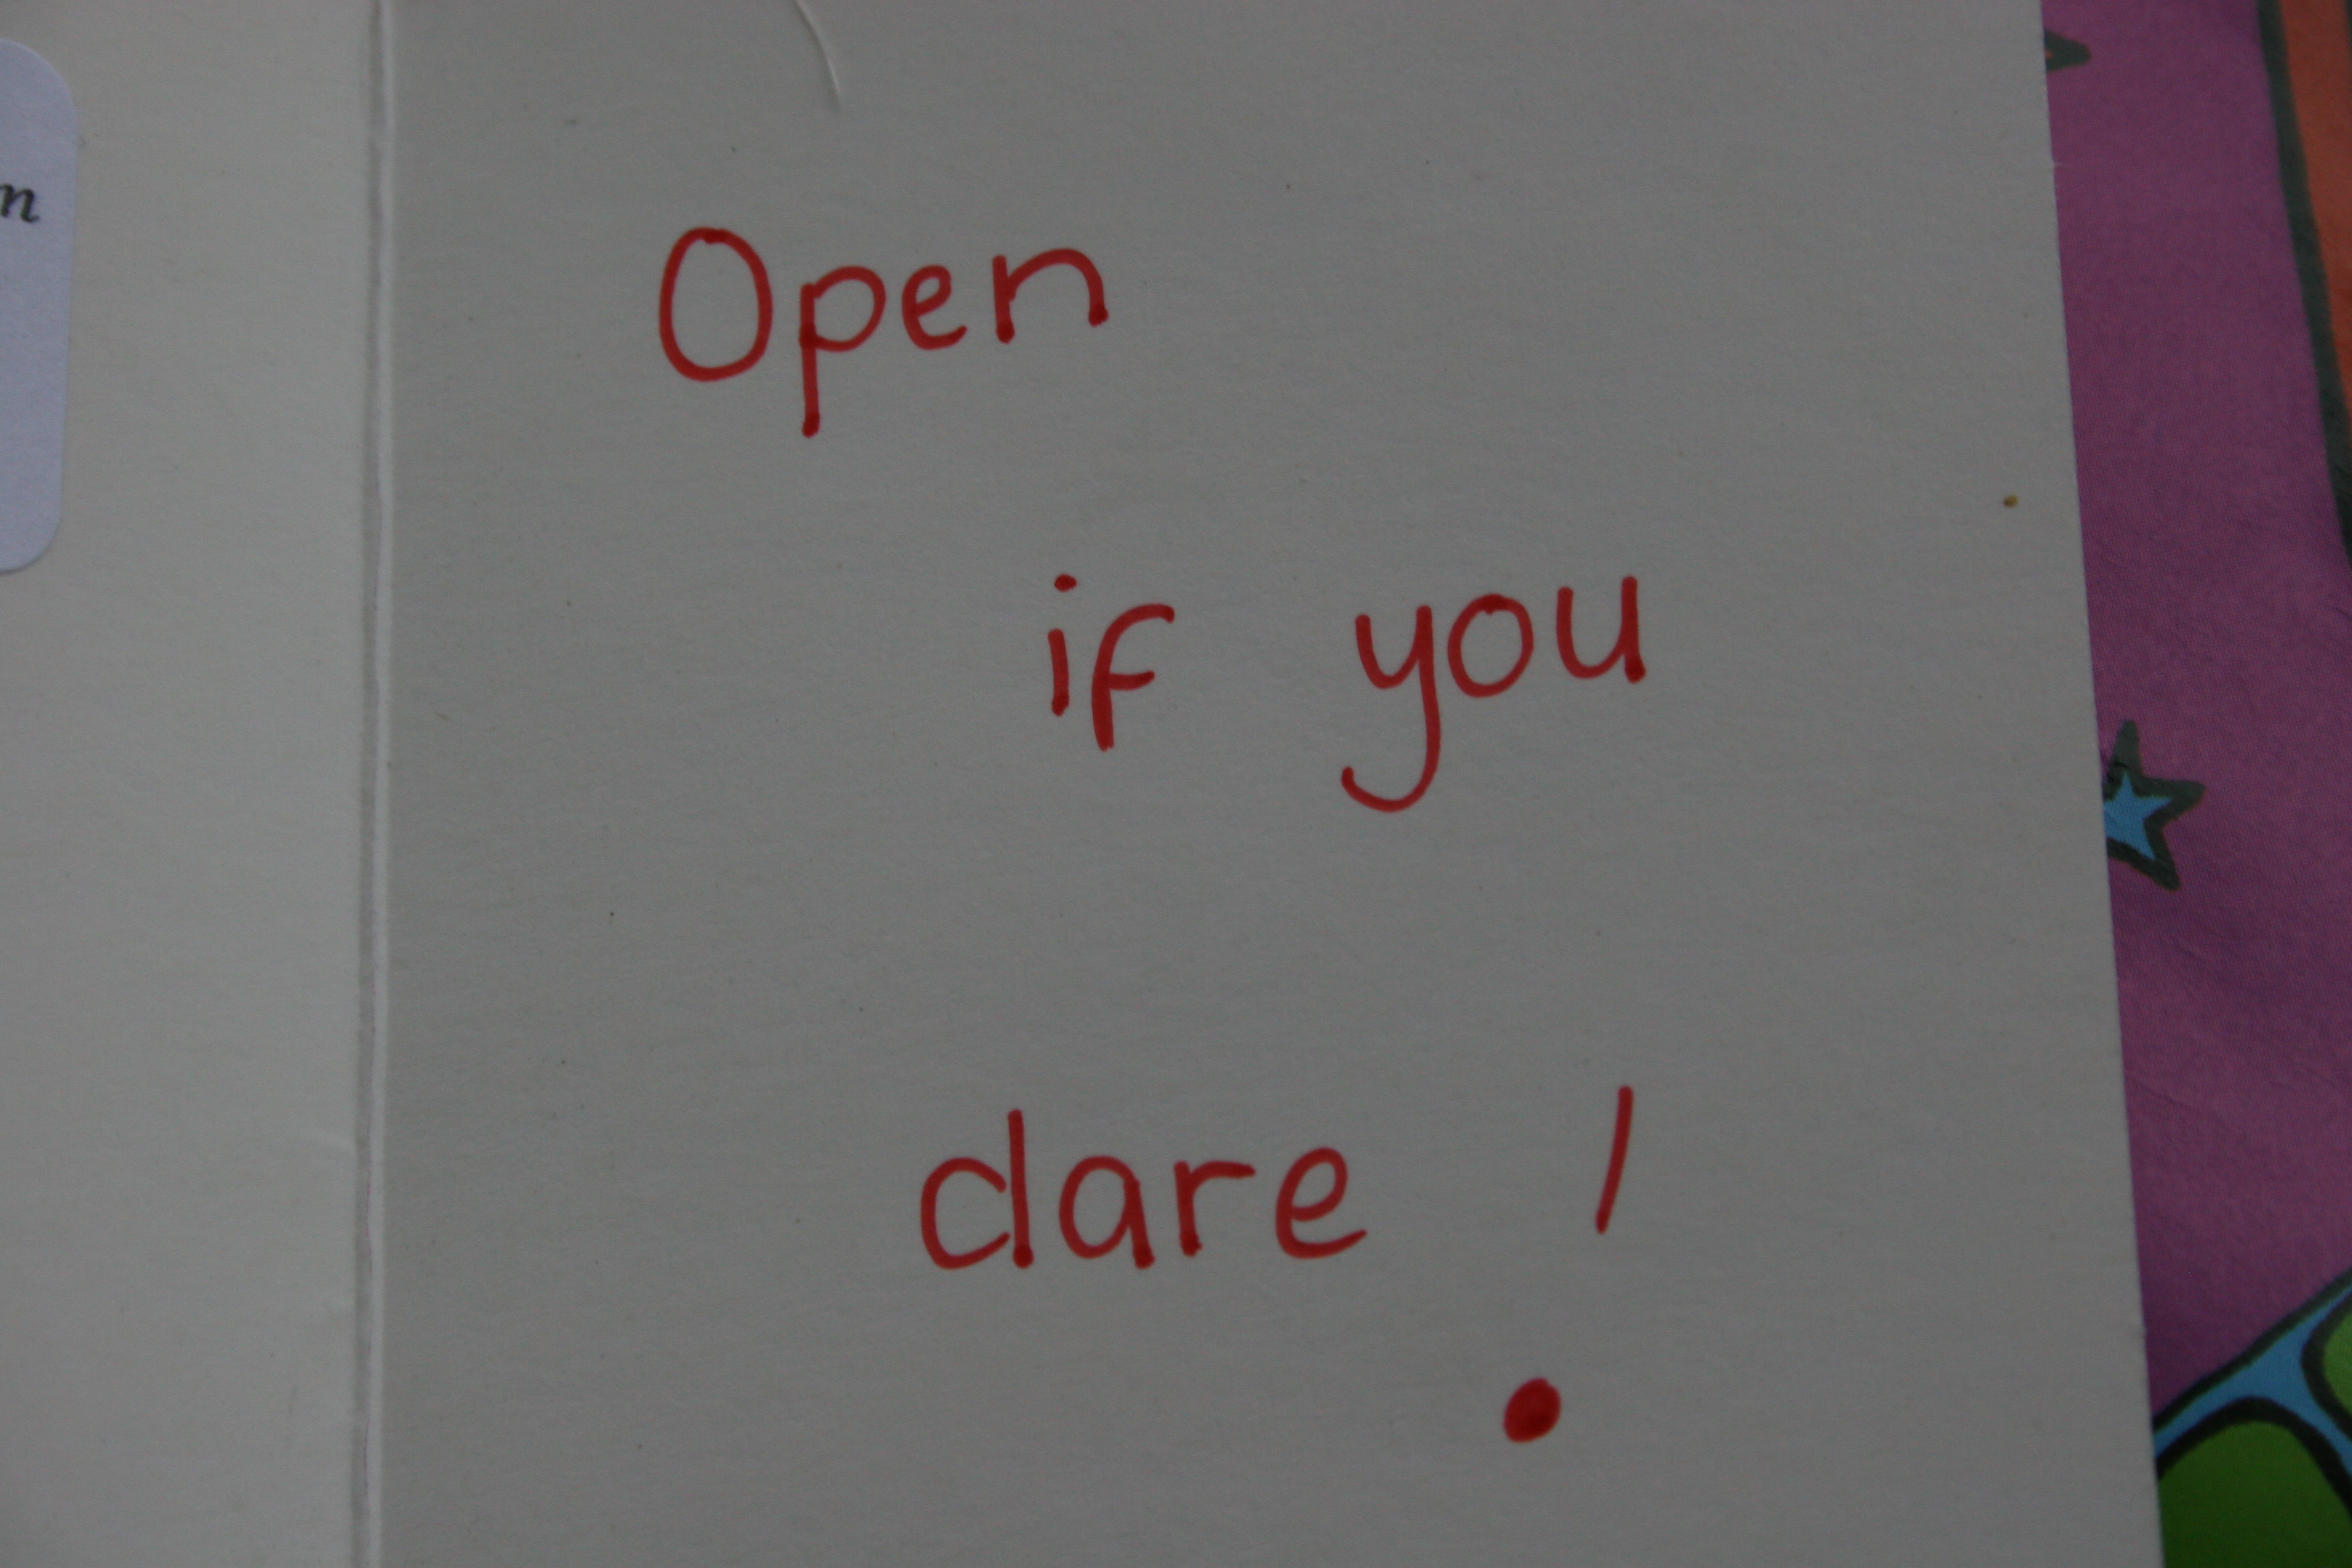 n
Open
if you
dare !